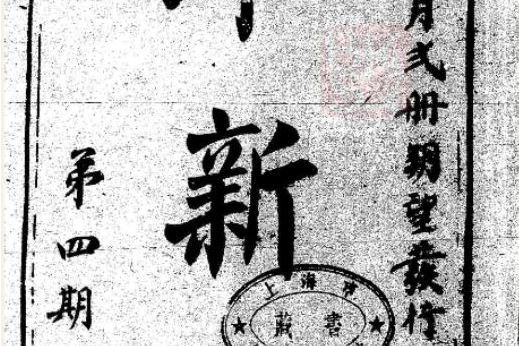 月弍冊朔望發行
新
第四期
上海
藏書